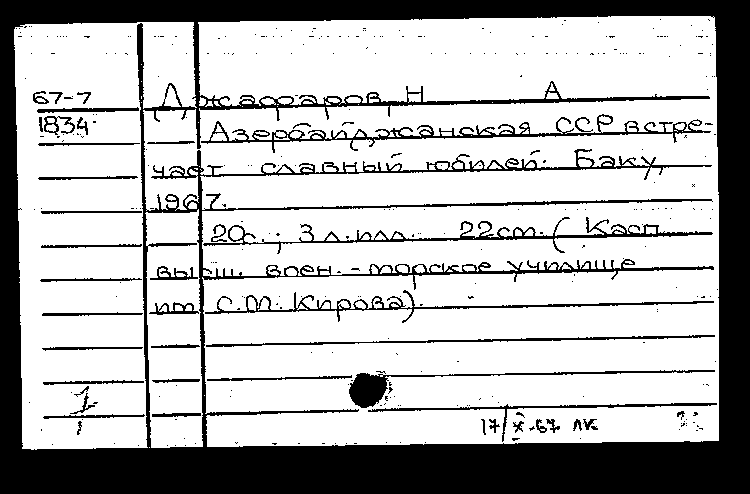 67-7 Джафаров, Н А
1834 Азербайджанская ССР встре-
чает славный юбилей. Баку,
1967.
20с.; 3 л. илл. 22см. (Касп
высш. воен.-морское училище
им С.М. Кирова).
1
17/X-67 ЛК